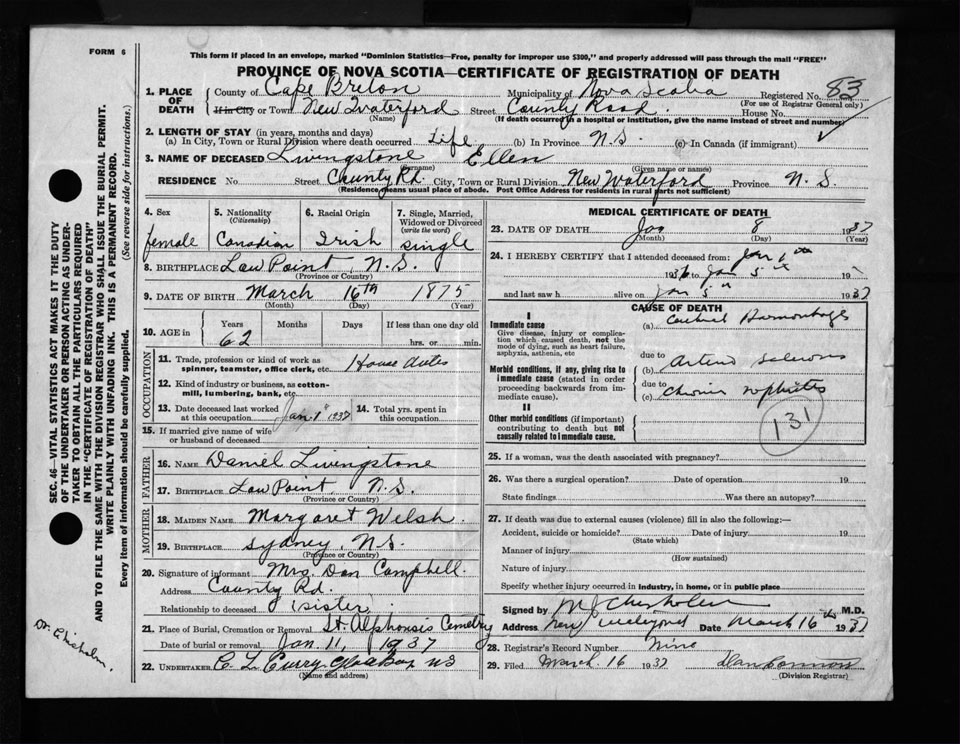 FORM 6
This form if placed in an envelope, marked "Dominion Statistics—Free, penalty for improper use $300," and properly addressed will pass through the mail "FREE"
PROVINCE OF NOVA SCOTIA—CERTIFICATE OF REGISTRATION OF DEATH
SEC. 46—VITAL STATISTICS ACT MAKES IT THE DUTY
OF THE UNDERTAKER OR PERSON ACTING AS UNDER-
TAKER TO OBTAIN ALL THE PARTICULARS REQUIRED
IN THE "CERTIFICATE OF REGISTRATION OF DEATH"
AND TO FILE THE SAME WITH THE DIVISION REGISTRAR WHO SHALL ISSUE THE BURIAL PERMIT.
WRITE PLAINLY WITH UNFADING INK. THIS IS A PERMANENT RECORD.
Every item of information should be carefully supplied. (See reverse side for instructions.)
Dr. Chisholm.
1. PLACE OF DEATH County of Cape Breton Municipality of Nova Scotia Registered No. 83
(For use of Registrar General only)
If in City or Town New Waterford Street County Road House No.
(Name) (If death occurred in a hospital or institution, give the name instead of street and number)
2. LENGTH OF STAY (in years, months and days)
(a) In City, Town or Rural Division where death occurred Life (b) In Province N.S. (c) In Canada (if immigrant)
3. NAME OF DECEASED Livingstone Ellen
(Surname) (Given name or names)
RESIDENCE No Street County Rd. City, Town or Rural Division New Waterford Province N.S.
(Residence means usual place of abode. Post Office Address for residents in rural parts not sufficient)
4. Sex 5. Nationality (Citizenship) 6. Racial Origin 7. Single, Married, Widowed or Divorced (write the word)
female Canadian Irish single
8. BIRTHPLACE Low Point, N.S.
(Province or Country)
9. DATE OF BIRTH March 16th 1875
(Month) (Day) (Year)
10. AGE in Years Months Days If less than one day old
62 hrs. or min.
OCCUPATION
11. Trade, profession or kind of work as spinner, teamster, office clerk, etc. House duties
12. Kind of industry or business, as cotton-mill, lumbering, bank, etc.
13. Date deceased last worked at this occupation Jan. 1st 1937 14. Total yrs. spent in this occupation
15. If married give name of wife or husband of deceased
FATHER
16. NAME Daniel Livingstone
17. BIRTHPLACE Low Point, N.S.
(Province or Country)
MOTHER
18. MAIDEN NAME Margaret Welsh.
19. BIRTHPLACE Sydney, N.S.
(Province or Country)
20. Signature of informant Mrs. Dan Campbell.
Address County Rd.
Relationship to deceased (sister)
21. Place of Burial, Cremation or Removal St. Alphonsis Cemetry
Date of burial or removal Jan. 11, 1937
22. UNDERTAKER C. L. Curry Glace Bay NS
(Name and address)
MEDICAL CERTIFICATE OF DEATH
23. DATE OF DEATH Jan 8 1937
(Month) (Day) (Year)
24. I HEREBY CERTIFY that I attended deceased from: Jan
193 Jan 5th 19
and last saw h alive on Jan 5th 1937
CAUSE OF DEATH
I
Immediate cause
Give disease, injury or complication which caused death, not the mode of dying, such as heart failure, asphyxia, asthenia, etc
(a) Cerebral Hemorrhage
due to
Morbid conditions, if any, giving rise to immediate cause (stated in order proceeding backwards from immediate cause).
(b) Arterio sclerosis
due to
(c) Chronic nephritis
131
II
Other morbid conditions (if important) contributing to death but not causally related to immediate cause.
25. If a woman, was the death associated with pregnancy?
26. Was there a surgical operation? Date of operation 19
State findings Was there an autopsy?
27. If death was due to external causes (violence) fill in also the following:—
Accident, suicide or homicide? Date of injury 19
(State which)
Manner of injury
(How sustained)
Nature of injury
Specify whether injury occurred in industry, in home, or in public place
Signed by M J Chisholm M.D.
Address New Waterford Date March 16th 1937
28. Registrar's Record Number Nine
29. Filed March 16 1937
(Division Registrar)